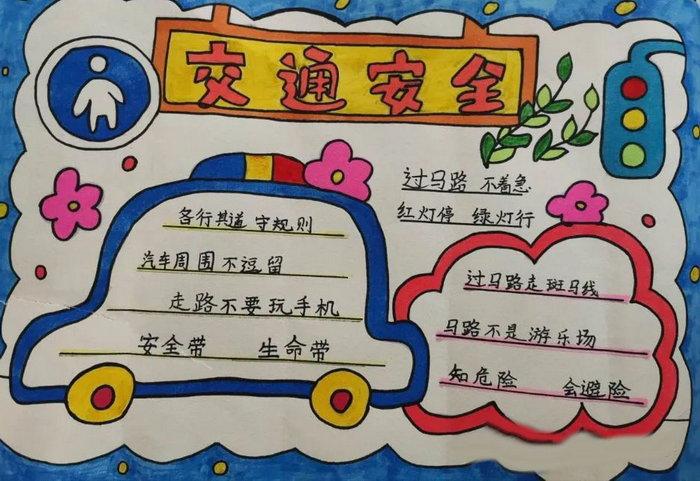 交通安全
过马路 不着急
红灯停 绿灯行
各行其道 守规则
汽车周围不逗留
走路不要玩手机
安全带 生命带
过马路走斑马线
马路不是游乐场
知危险 会避险